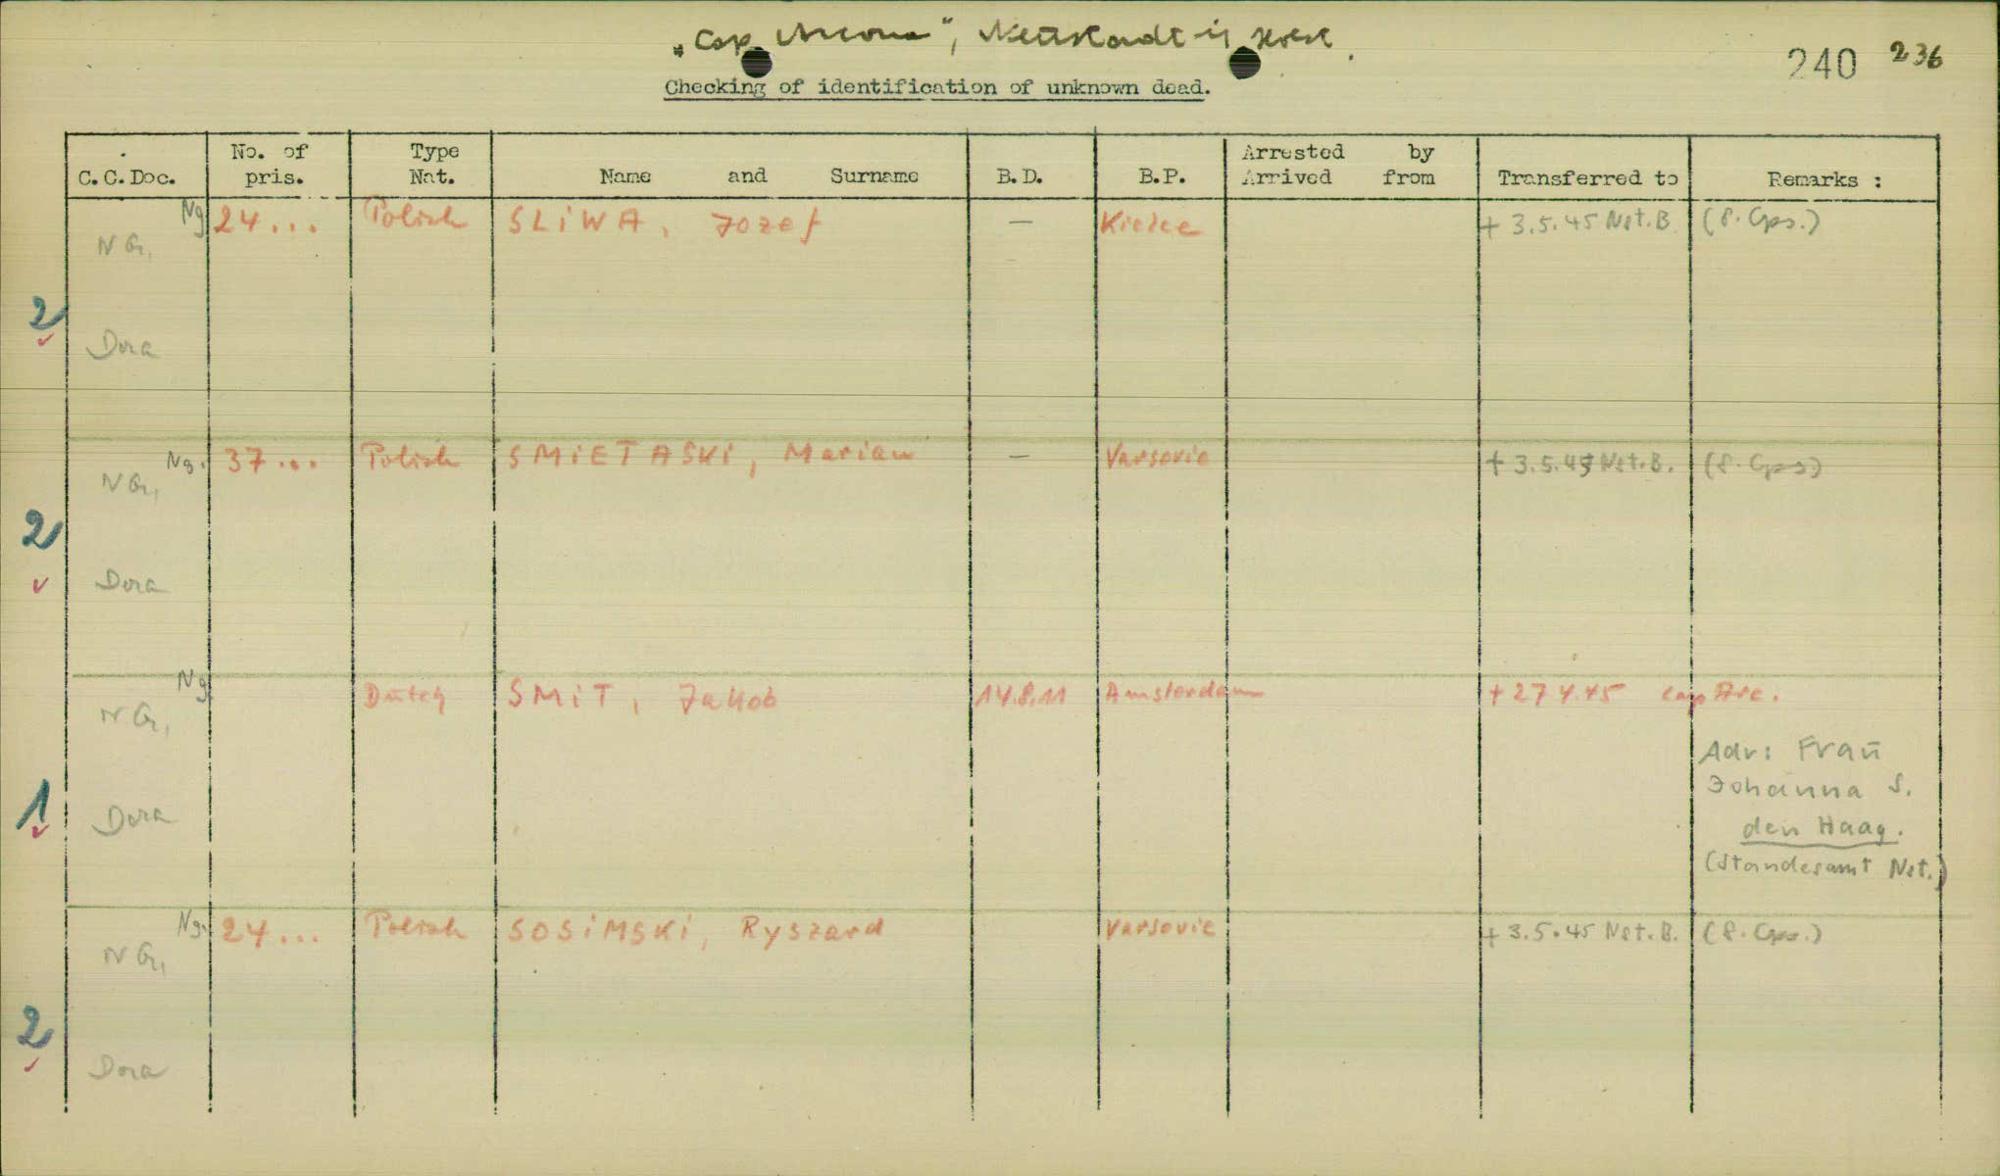 „Cap Arcona", Neustadt i/ Holst.
240 236
Checking of identification of unknown dead.
C.C.Doc. No. of pris. Type Nat. Name and Surname B.D. B.P. Arrested by Arrived from Transferred to Remarks :
NG, Ng 24... Polish SLiWA, Jozef — Kielce + 3.5.45 Nst.B. (8. Cps.)
2
Dora
NG, Ng. 37... Polish SMiETASKi, Marian — Varsovie + 3.5.45 Nst.B. (8. Cps)
2
Dora
NG, Ng Dutch SMiT, Jakob 14.8.11 Amsterdam + 27 4.45 Cap Arc.
Adr: Frau
Johanna S.
1 Dora den Haag.
(Standesamt Nst.)
NG, Ng. 24... Polish SOSiMSKi, Ryszard Varsovie + 3.5.45 Nst.B. (8. Cps.)
2
Dora